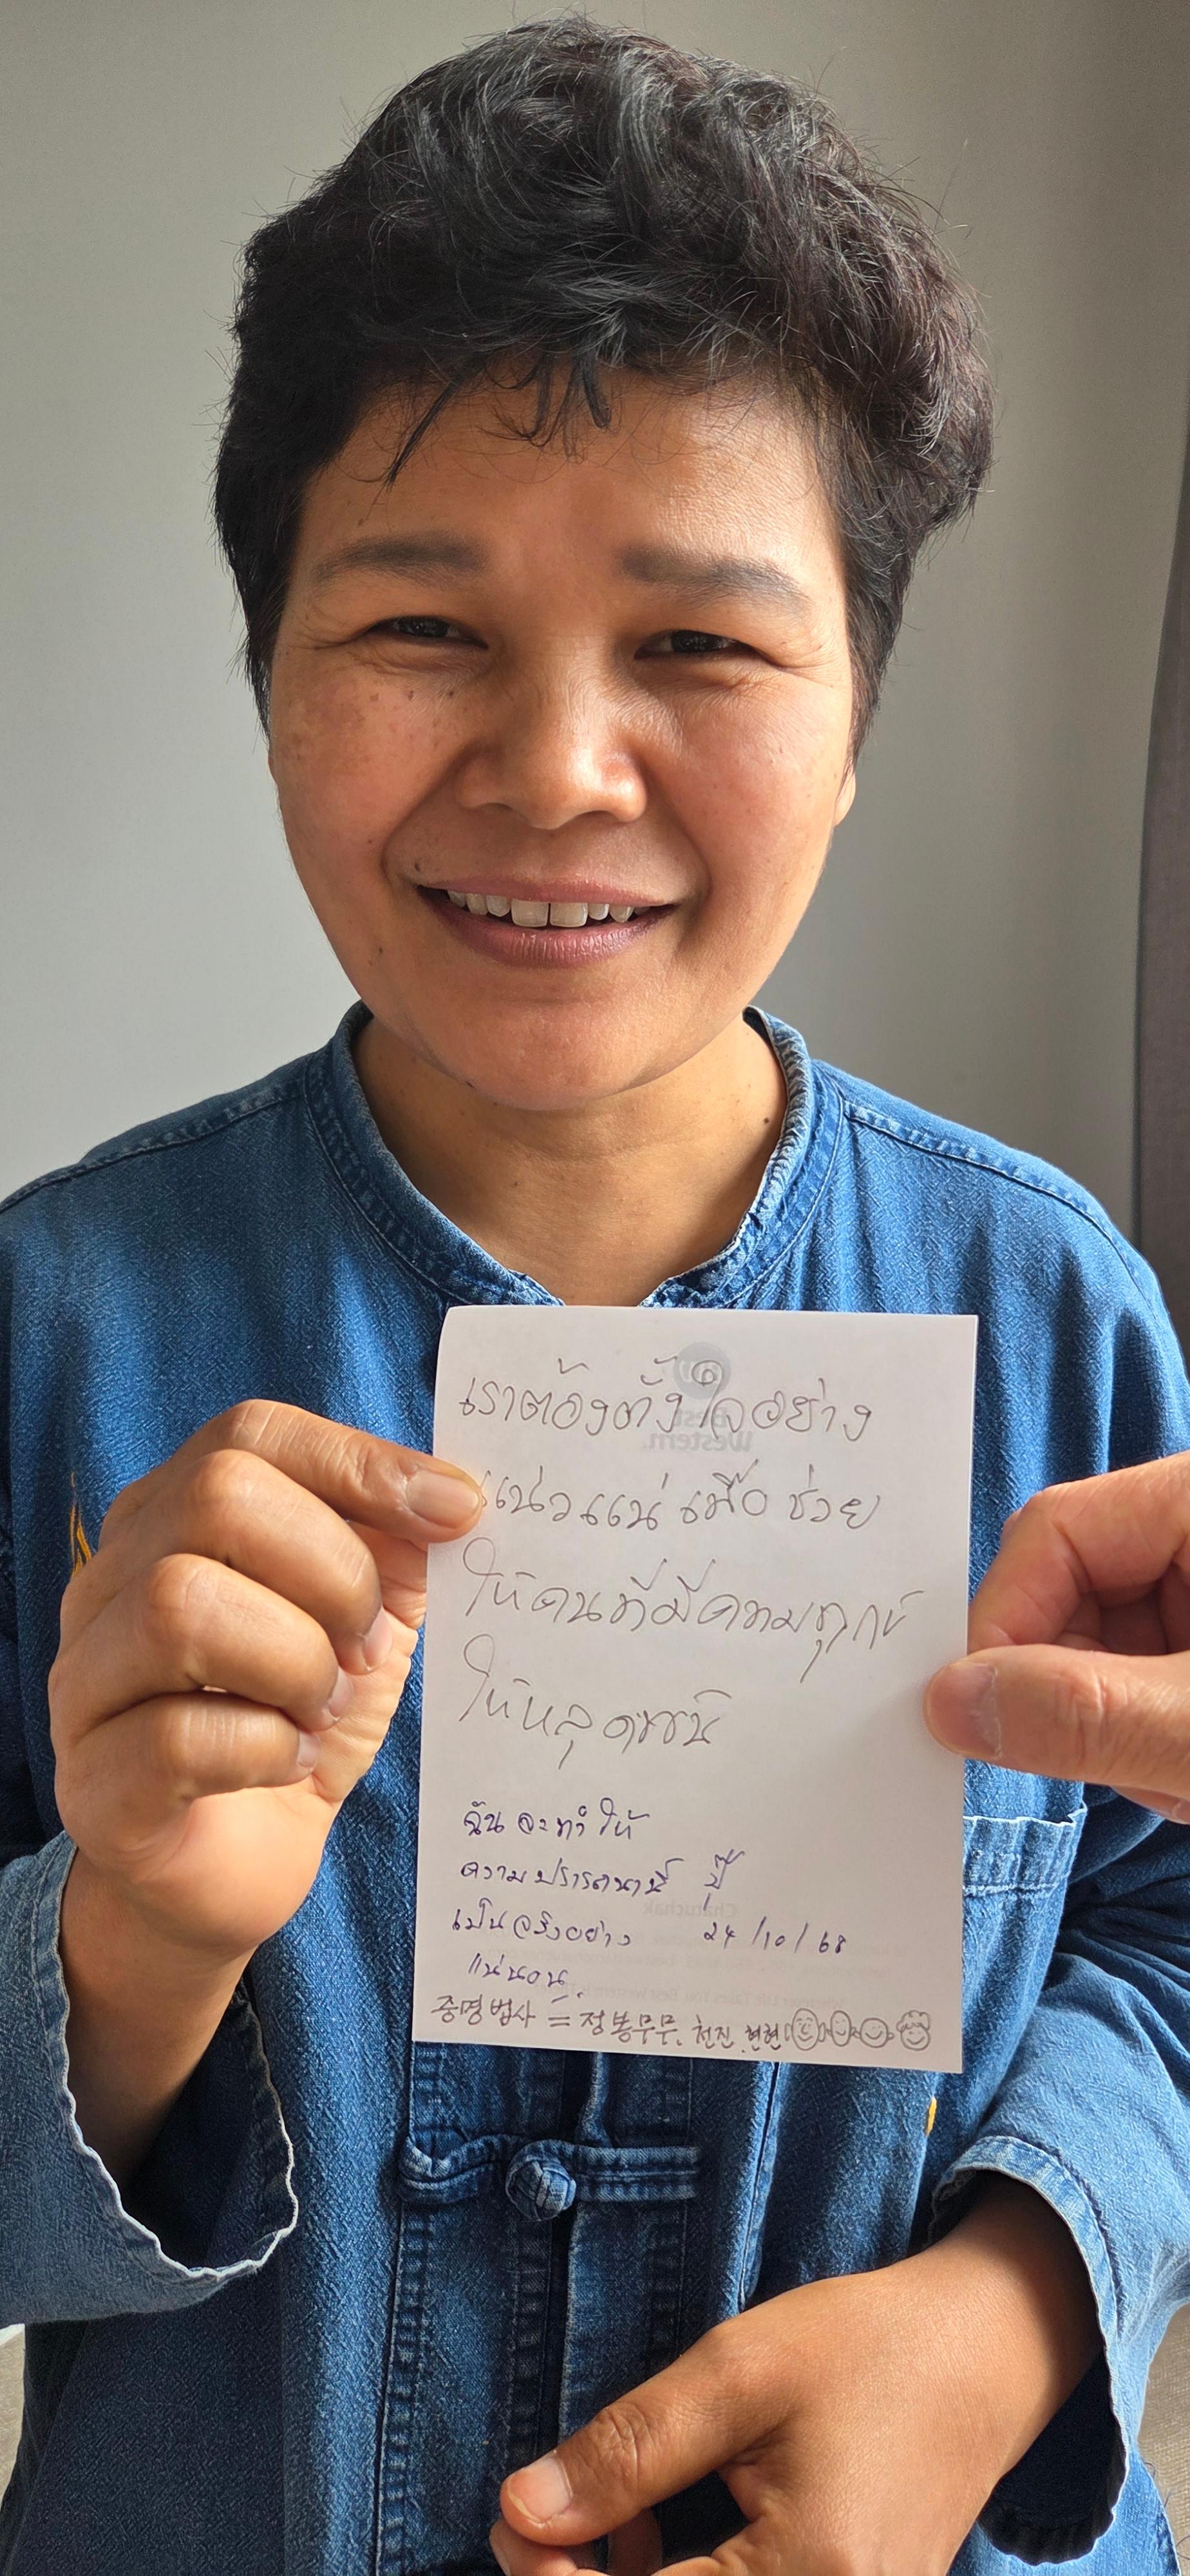 เราต้องตั้งใจอย่าง
แน่วแน่ เพื่อ ช่วย
ให้คนที่มีความทุกข์
ให้หลุดพ้น
ฉัน จะทำ ให้
ความปรารถนานี้ ปุ๊
เป็นจริงอย่าง 24/10/68
แน่นอน
증명법사 = 정봉무무. 천진. 현현
Best
Western.
Chatuchak